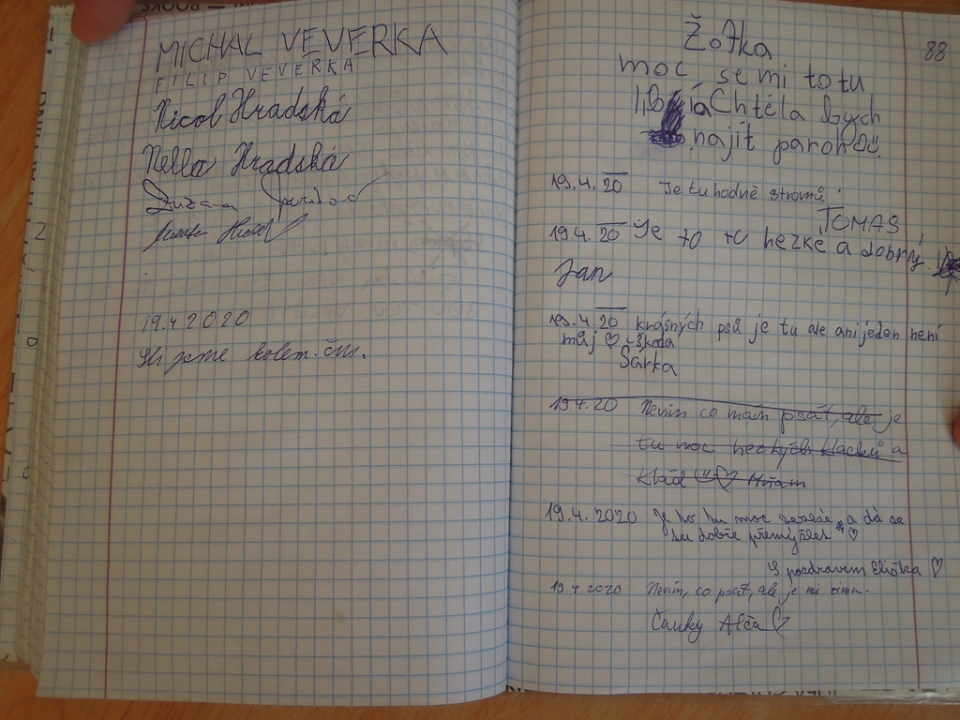 MICHAL VEVERKA
FILIP VEVERKA
Nicol Hradská
Nella Hradská
Zuzana
19.4 2020
Šli jsme kolem.
88
Žofka
moc se mi to tu
líbí á Chtěla bych
najít paroháč.
19.4.20 Je tu hodně stromů
TOMAS
19.4.20 Je to tu hezké a dobrý.
Jan
19.4.20 krásných psů je tu ale ani jeden není
můj ♡ - škoda
Šárka
19.4.20 Nevím co mám psát, ale je
tu moc hezkých klacků a
klád ♡
19.4.2020 Je to tu moc a dá se
tu dobře přemýšlet ♡
S pozdravem Eliška ♡
19.4.2020 Nevím, co psát, ale je mi zima.
Čauky Alča ♡